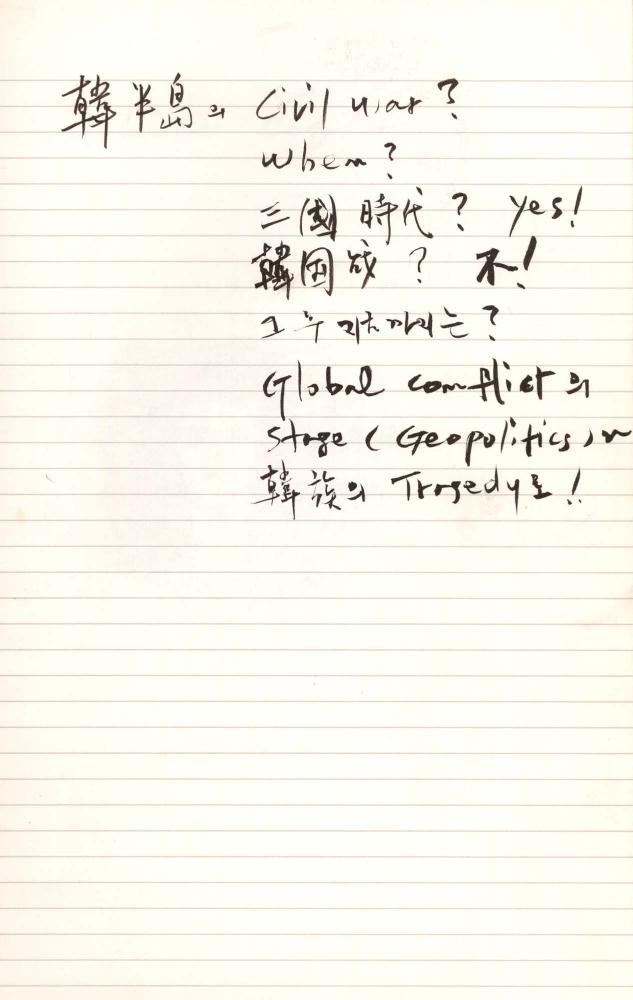 韓半島의 Civil war?
When?
三國時代? yes!
韓国戰? 不!
그 후 까지는?
Global conflict의
Stage (Geopolitics)
韓族의 Tragedy로!